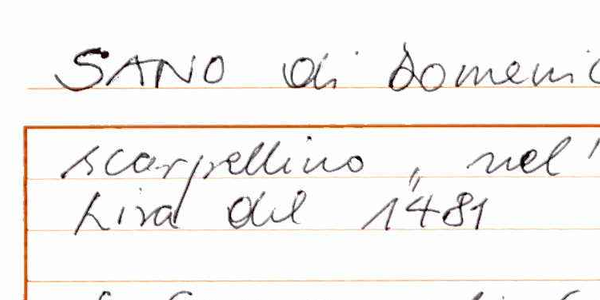 SANO di Domenic
scarpellino, nel'
Lira del 1481